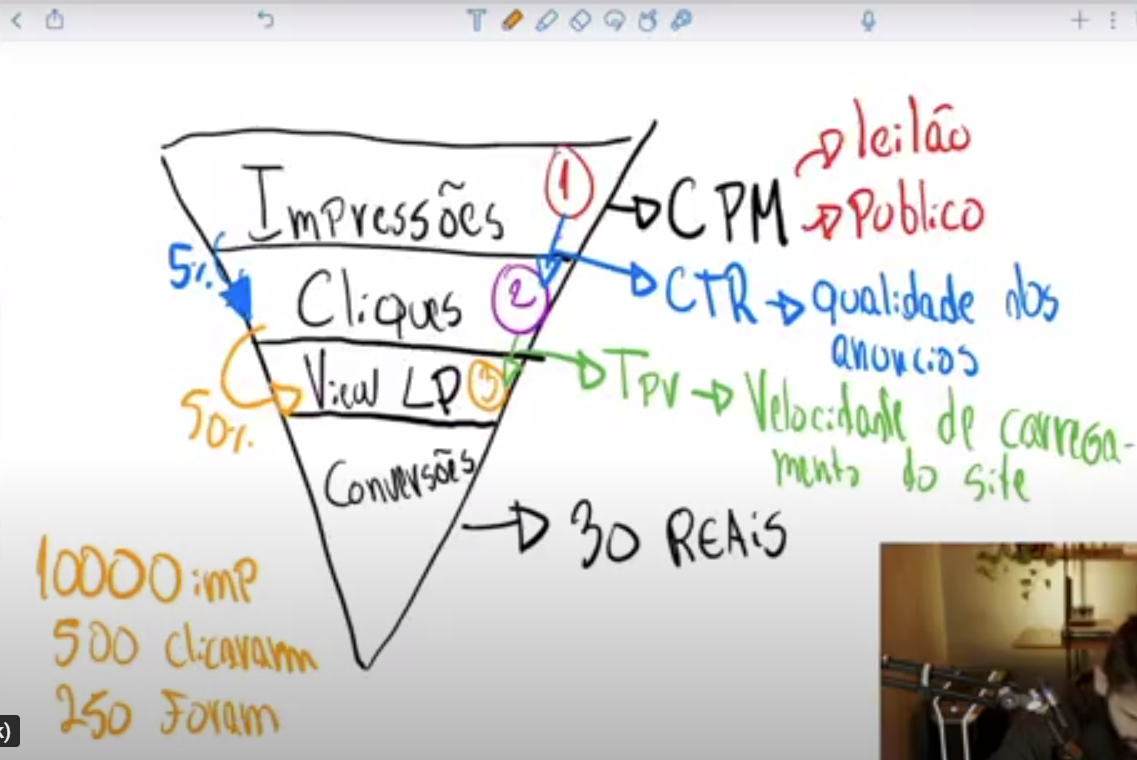 Impressões 1
CPM
leilão
Público
5%
Cliques 2
CTR
qualidade dos
anúncios
View LP 3
TPV
Velocidade de carrega-
mento do site
50%
Conversões
30 REAiS
10000 imp
500 clicaram
250 Foram
k)